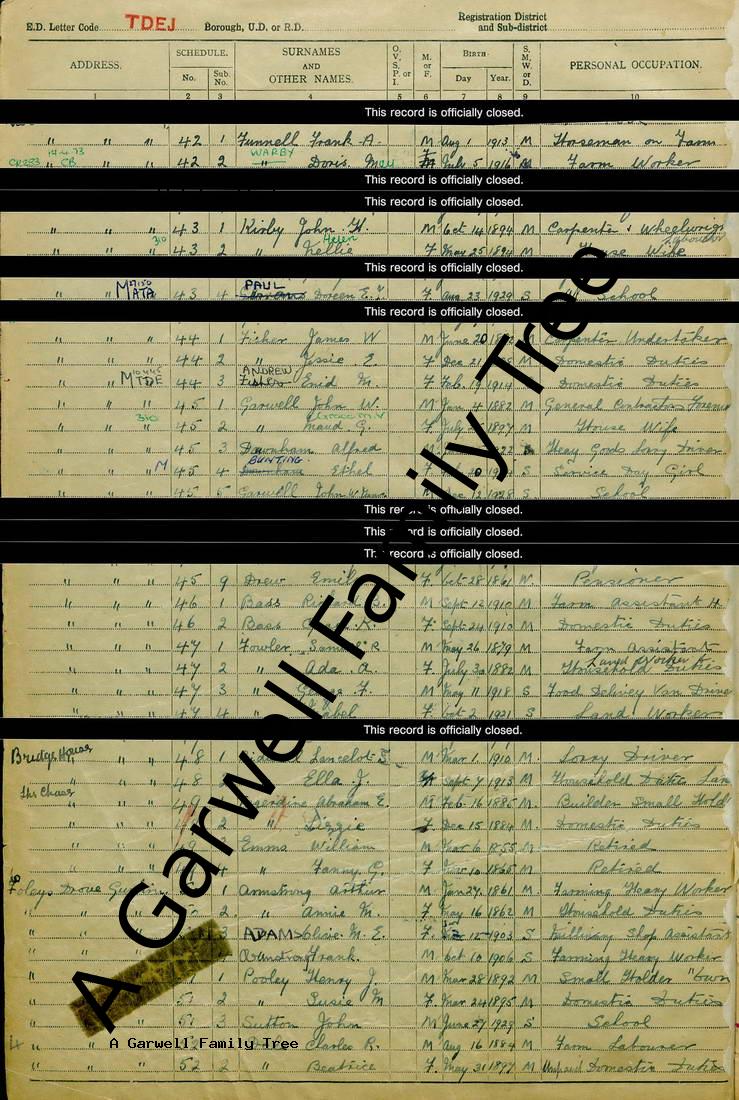 E.D. Letter Code TDEJ Borough, U.D. or R.D. Registration District and Sub-district
ADDRESS. SCHEDULE. No. Sub. No. SURNAMES AND OTHER NAMES. O, V, S, P, or I. M. or F. BIRTH Day Year. S, M, W, or D. PERSONAL OCCUPATION.
1 2 3 4 5 6 7 8 9 10
This record is officially closed.
" " " 42 1 Funnell Frank A. M Aug 1 1913 M Horseman on Farm
WARBY
CR283 14.4.73 CB " 42 2 " Doris May F July 5 1916 M Farm Worker
This record is officially closed.
This record is officially closed.
" " " 43 1 Kirby John H. M Oct 14 1894 M Carpenter & Wheelwright
Helen
" " " 310 43 2 " Nellie F May 25 1894 M House Wife
This record is officially closed.
PAUL
" " MATA 43 4 Doreen E. F. Aug 23 1929 S At School
This record is officially closed.
" " " 44 1 Fisher James W M June 20 M Carpenter Undertaker
" " " 44 2 " Jessie E. F Dec 21 M Domestic Duties
ANDREW
" " M TDE 44 3 Fisher Enid M. F Feb. 19 1914 Domestic Duties
" " " 45 1 Garwell John W. M Jan 4 1882 M General Contractors Foreman
" " 310 45 2 " Maud G. F July 1897 M House Wife
" " " 45 3 Downham Alfred M Heavy Goods Lorry Driver
BUNTING
" " M 45 4 Downham Ethel F 20 S Service Day Girl
" " " 45 5 Garwell John W. M Dec 12 1928 S School
This record is officially closed.
This record is officially closed.
This record is officially closed.
" " " 45 9 Drew Emily F. Oct 28 1861 W. Pensioner
" " " 46 1 Bass M Sept 12 1910 M Farm Assistant H.
" " " 46 2 Bass F. Sept 24 1910 M Domestic Duties
" " " 47 1 Fowler Samuel R M May 26 1879 M Farm Assistant
Land Worker
" " " 47 2 " Ada A. F. July 30 1882 M Household Duties
" " " 47 3 " George F. M May 11 1918 S Food Delivery Van Driver
" " " 47 4 " F. Oct 2 1921 S Land Worker
This record is officially closed.
Bridge House " " 48 1 Lancelot M Mar 1 1910 M. Lorry Driver
" " " 48 2 Ella J. F Sept 7 1913 M Household Duties
The Chase
" " " 49 1 Abraham E. M Feb 16 1885 M. Builder Small Hold
" " " 2 " Lizzie F Dec 15 1884 M. Domestic Duties
" " " Emms William M Mar 6 1855 M Retired
" " " 4 " Fanny G. F 10 1865 M Retired
Foleys Drove 1 Armstrong Arthur M Jan 27 1861 M. Farming Heavy Worker
" " " 2 " Annie M. F. May 16 1862 M Household Duties
" " 3 ADAMS Olive M. E. F 12 1903 S Millinery Shop Assistant
" " Armstrong Frank M Oct 10 1906 S Farming Heavy Worker
" " 1 Pooley Henry J. M Mar 28 1892 M Small Holder "own
" " 51 2 " Susie M F. Mar 24 1895 M Domestic Duties
" " " 51 3 Sutton John M June 29 1929 S School
" " " Charles R. M Aug 16 1884 M Farm Labourer
" " " 52 2 " Beatrice F. May 31 1897 M Unpaid Domestic Duties
A Garwell Family Tree
A Garwell Family Tree